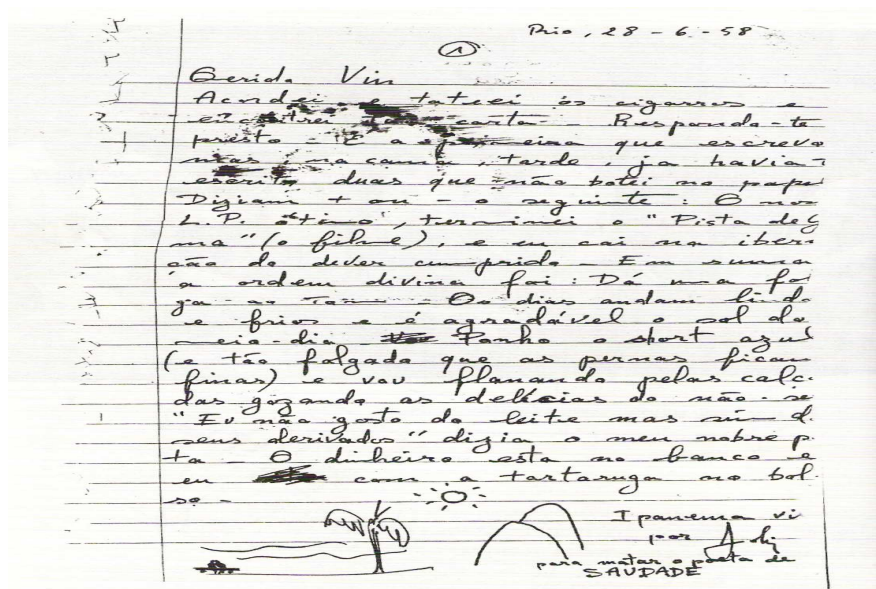 Rio, 28-6-58
1
Querido Vin
Acordei e tateei os cigarros e
encontrei carta - Respondo-te
presto - É a primeira que escrevo
mas, na cama, tarde, ja havia
escrito duas que não botei no pape
Diziam + ou - o seguinte: O nos
L.P. ótimo, terminei o "Pista de G
ma" (o filme), e eu cai na iber
ção do dever cumprido - Em suma
a ordem divina foi: Dá uma fol
ga ao Tom - Os dias andam lindo
e frios e é agradável o sol do
meio-dia Ponho o short azul
(e tão folgado que as pernas ficam
finas) e vou flanando pelas calc.
das gozando as delícias do não-se
"Eu não gosto do leite mas sim d.
seus derivados" dizia o meu nobre p.
ta - O dinheiro esta no banco e
eu com a tartaruga no bol
so -
Ipanema vi
por
para matar o poeta de
SAUDADE